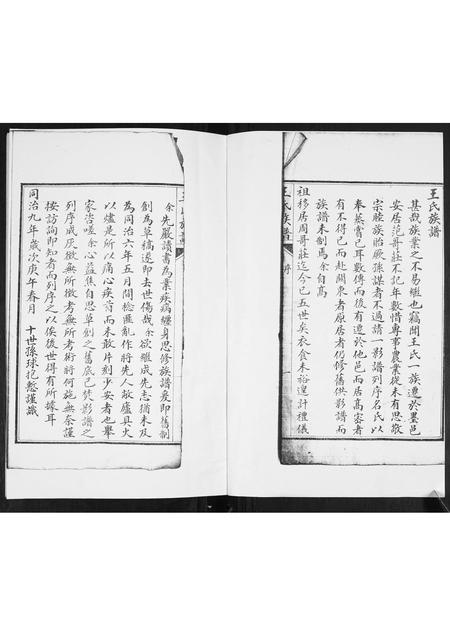 王氏族譜
甚哉族業之不易繼也竊聞王氏一族遷於墨邑
安居范哥莊不記年數惜專事農業從未有思敬
宗睦族貽厥孫謀者不過請一影譜列序名氏以
奉蒸嘗已耳數傳而後有遷於他邑而居高密者
有不得已而赴關東者原居者仍修舊供影譜而
族譜未制焉余自高
祖移居周哥莊迄今已五世矣衣食未裕遑計禮儀
王氏族譜
序
余先嚴讀書為業疾病纏身思修族譜爰即舊制
創為草稿遽即去世傷哉余欲繼成先志猶未及
為同治六年五月間捻匪亂作將先人敝廬具火
以燼是所以痛心疾首而未敢片刻少安者也舉
家咨嗟余心益焦自思草創之舊底已焚影譜之
列序成灰徵無所徵考無所考術將何施無奈謹
按訪詢即知者而列序之以俟後世得有所據耳
同治九年歲次庚午春月 十世孫球記慤謹識